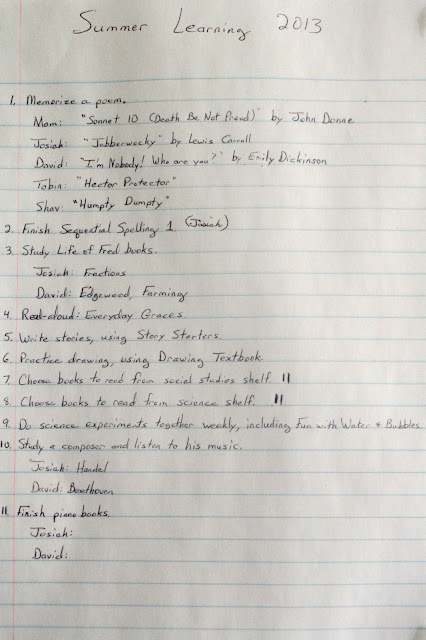 Summer Learning 2013
1. Memorize a poem.
Mom: "Sonnet 10 (Death Be Not Proud)" by John Donne
Josiah: "Jabberwocky" by Lewis Carroll
David: "I'm Nobody! Who are you?" by Emily Dickinson
Tobin: "Hector Protector"
Shav: "Humpty Dumpty"
2. Finish Sequential Spelling 1 (Josiah)
3. Study Life of Fred books.
Josiah: Fractions
David: Edgewood, Farming
4. Read-aloud: Everyday Graces
5. Write stories, using Story Starters.
6. Practice drawing, using Drawing Textbook.
7. Choose books to read from social studies shelf. II
8. Choose books to read from science shelf. II
9. Do science experiments together weekly, including Fun with Water & Bubbles.
10. Study a composer and listen to his music.
Josiah: Handel
David: Beethoven
11. Finish piano books.
Josiah:
David: